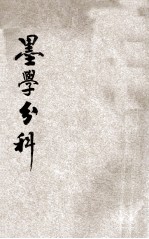 墨學分科